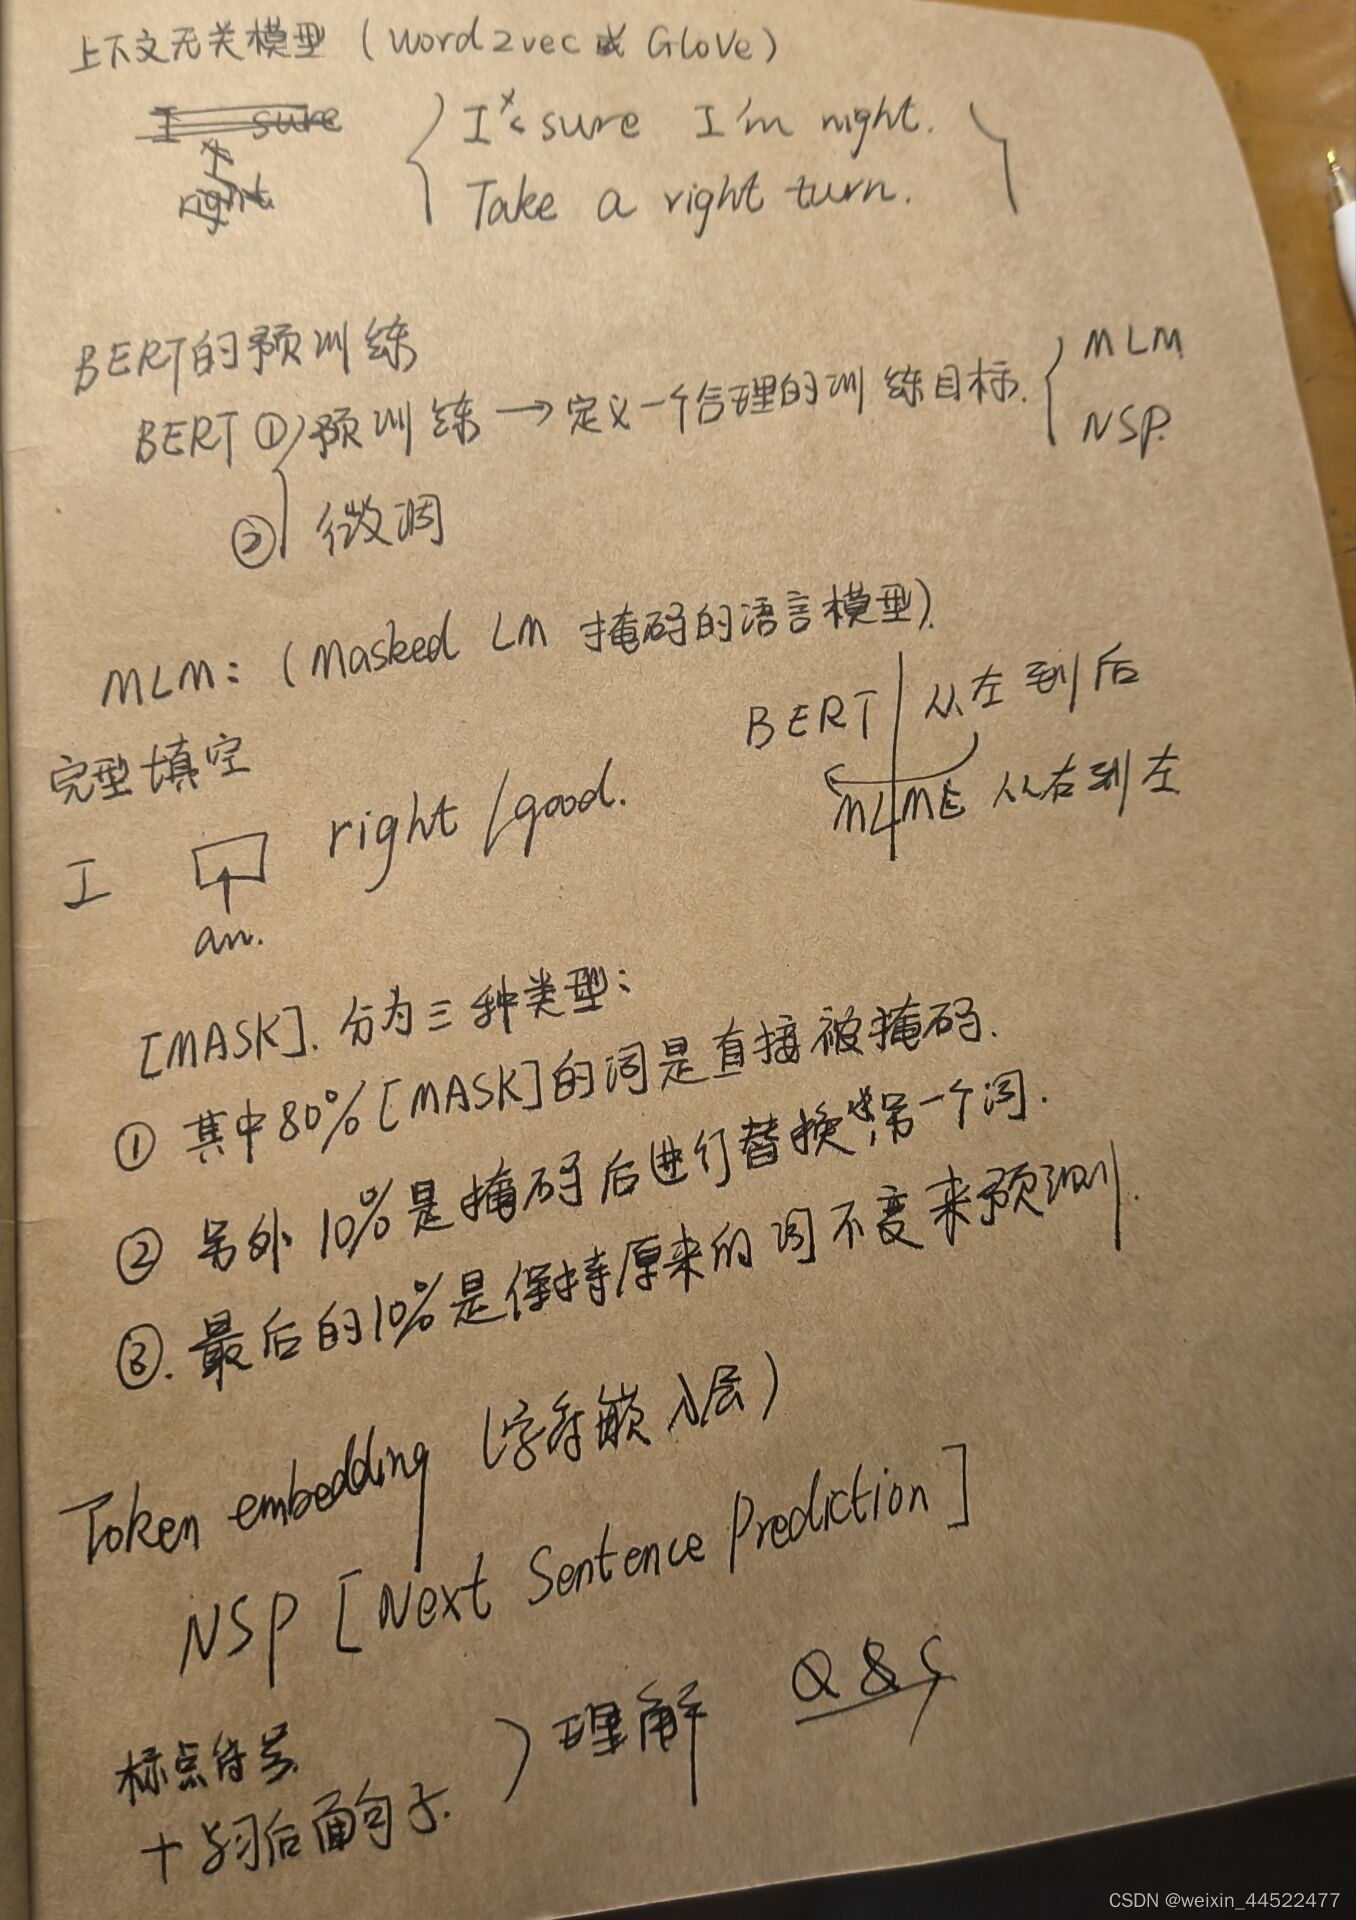 上下文无关模型 (word2vec或 GloVe)
I sure
right.
I sure I'm right.
Take a right turn.
BERT的预训练
BERT ① 预训练 → 定义一个合理的训练目标. MLM
NSP.
② 微调
MLM: (Masked LM 掩码的语言模型).
完型填空
BERT 从左到后
MLME 从右到左
I right /good.
am.
[MASK]. 分为三种类型:
① 其中80%[MASK]的词是直接被掩码.
② 另外 10%是掩码后进行替换成另一个词.
③. 最后的10%是保持原来的词不变来预测.
Token embedding (字符嵌入层)
NSP [Next Sentence Prediction]
标点符号
理解 Q&S
+ 学习后面句子.
CSDN @weixin_44522477